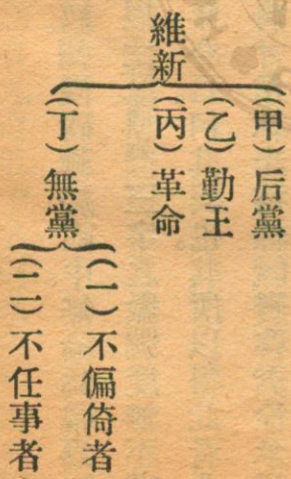 維新
（甲）后黨
（乙）勤王
（丙）革命
（丁）無黨
（一）不偏倚者
（二）不任事者